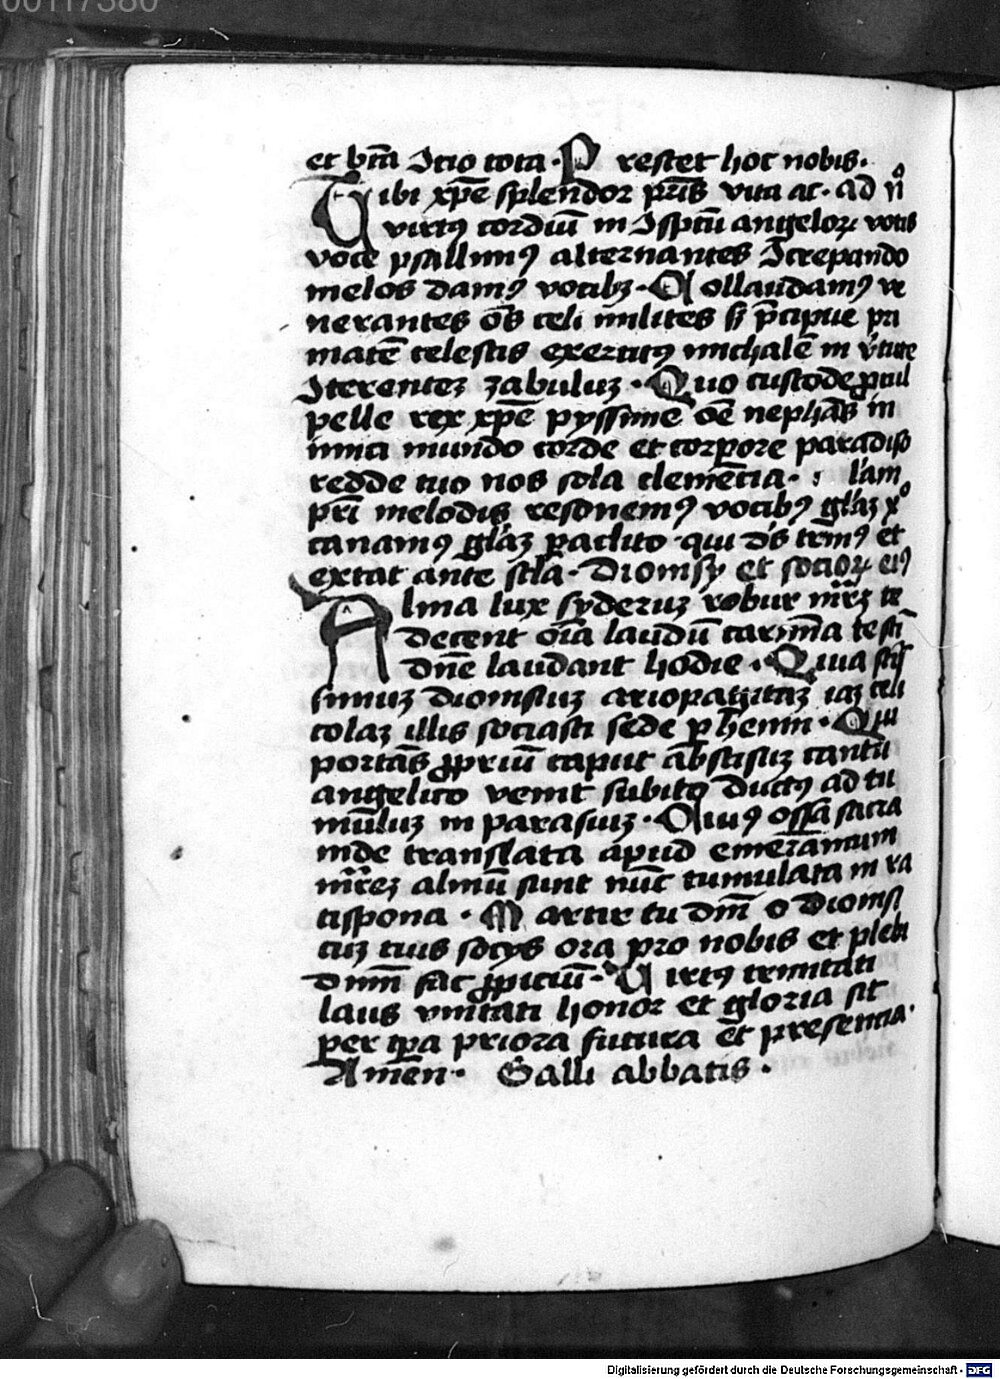 00117380
et br̄a Jrio tota · P restet hoc nobis ·
T ibi xp̄e splendor pr̄is vita ac · ad n̄o
virtꝰ cordiū in ɔsptū angeloꝝ votis
voce psallimꝰ alternantes ɔcrepando
melos damꝰ vocibꝫ · C ollaudamꝰ ve
nerantes oē̄s celi milites sꝫ p̄cipue pri
matē celestis exercitꝰ michaelē in v̄tute
ɔterentez zabuluz · Quo custode ꝓcul
pelle rex xp̄e pyssime oē̄ nephas in
imici mundo corde et corpore paradiso
redde tuo nos sola clemēcia · : l'am
pr̄i melodis resonemꝰ vocibꝰ gl'az xº
canamꝰ gl'az paclito · qui dˢ trinꝰ et
extat ante scl'a · Dionisy et socioꝝ eiꝰ
A lma lux syderuz robur mr̄ez te
decent oīa laudū carmīa te isti
dn̄e laudant hodie · Qui a stis
simuz dionisiuz ariopagitaz iaz celi
colaz illis sociasti sede phēnni · Qui
portās ꝓpriū caput abscisuz cantu
angelico venit subito ductꝰ ad tu
mūluz in parasiuz · Cuiꝰ ossa sacra
inde translata apud emeramum
mr̄ez almū sunt nūc tumulata in ra
tispona · Martir tu dn̄i o dionisi
cuz tuis socys ora pro nobis et plebi
dn̄m fac ꝓpiciū · Virtꝰ trinitati
laus vnitati honor et gloria sit
per tp̄a priora futura et presencia ·
Amen · Galli abbatis ·
Digitalisierung gefördert durch die Deutsche Forschungsgemeinschaft - DFG